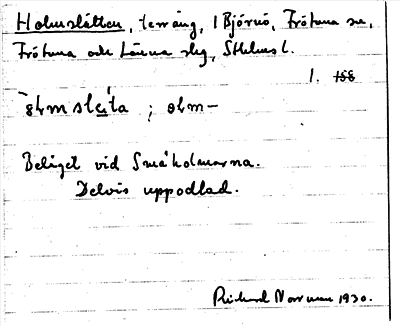 Holmslätten, terräng, 1 Björnö, Frötuna sn,
Frötuna och Länna slg, Sthlms l.
1. 158
; olm-
Beläget vid Småholmarna.
Delvis uppodlad.
Rickard Norrman 1930.